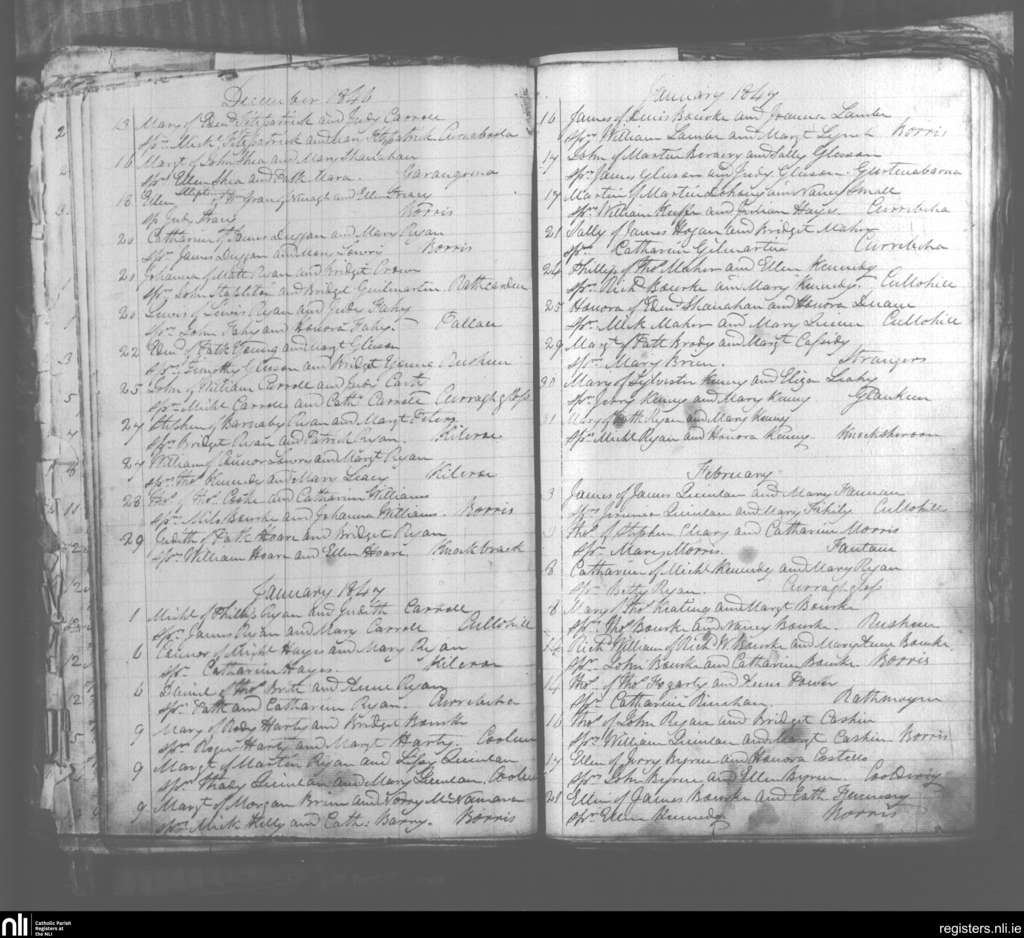 December 1846
13 Mary of Edmd Fitzpatrick and Judy Carroll
Spr Michl Fitzpatrick and Fitzpatrick Curnaboola
16 Margt of John Shea and Mary Shanahan
Spr Ellen Shea and Path Mara. Garangrena
18 Ellen of Nenagh and Ellen
Sp Judy Borris
20 Catharine of James Duggan and Mary Ryan
Spr James Duggan and Mary Lowry Borris
20 Johanna of Matt Ryan and Bridget
Spr John Stapleton and Bridget Guilmartin. Rathcarden
20 Lewis of Lewis Ryan and Judy Fahy
Spr John Fahy and Honora Fahy. Pallace
22 Edmd of Path Young and Margt Gleeson
Spr Timothy Gleeson and Bridget Young Rusheen
25 John of William Carroll and Judy
Spr Michl Carroll and Cath Carroll Curraghgloss
27 Stephen of Barnaby Ryan and Margt Peters
Spr Bridget Ryan and Patrick Ryan. Kilcroe
27 William of Connor Lowry and Margt Ryan
Spr Thos Kennedy and Mary Leary Kilcroe
28 Thos Thos Cooke and Catharine Williams
Spr Milo Bourke and Johanna Williams. Borris
29 Judith of Path Hoare and Bridget Ryan
Spr William Hoare and Ellen Hoare. Knockbrack
January 1847
1 Michl of Philip Ryan and Judith Carroll
Spr James Ryan and Mary Carroll Cullohill
6 Connor of Michl Hayes and Mary Ryan
Spr Catharine Hayes. Kilcroe
6 Daniel of Thos Britt and Anne Ryan
Spr Path and Catharine Ryan. Currebeha
9 Mary of Rody Harty and Bridget Bourke
Spr Roger Harty and Margt Harty. Cooleen
9 Margt of Martin Ryan and Quinlan
Spr Thady Quinlan and Mary Quinlan. Cooleen
9 Margt of Morgan Brien and Norry McNamara
Spr Mick Kelly and Cath: Barry. Borris
January 1847
16 James of Denis Bourke and Joanna Lambe
Spr William Lambe and Margt Lynch Borris
17 John of Martin and Sally Gleeson
Spr James Gleeson and Judy Gleeson. Gurtenabarna
17 Martin of Martin and Nancy Small
Spr William and Hayes. Currebeha
21 Sally of James Hogan and Bridget Maher
Spr Catharine Gilmartin Currebeha
24 Philip of Thos Maher and Ellen Kennedy
Spr Richd Bourke and Mary Kennedy. Cullohill
25 Honora of Edmd Shanahan and Honora Duane
Spr Mick Maher and Mary Quinn Cullohill
29 Margt of Path Brody and Margt Cassidy
Spr Mary Brien Strangers
30 Mary of Sylvester Kenny and Eliza Leahy
Spr Jerry Kenny and Mary Kenny Glankeen
31 Mary of Path Ryan and Mary Kenny
Spr Michl Ryan and Honora Kenny. Knocksheroon
February
3 James of James Quinlan and Mary Fannan
Spr Quinlan and Mary Fahily Cullohill
4 Thos of Stephen Cleary and Catharine Morris
Spr Mary Morris. Fantane
8 Catharine of Michl Kennedy and Mary Ryan
Spr Betty Ryan. Curraghgloss
8 Mary of Thos Keating and Margt Bourke
Spr Thos Bourke and Nancy Bourke. Rusheen
14 Richd William of Richd W. Bourke and Mary Anne Bourke
Spr John Bourke and Catharine Bourke Borris
14 Thos of Thos Fogarty and Anne Power
Spr Catharine Rathmoyen
16 Thos of John Ryan and Bridget Caskin
Spr William Quinlan and Margt Caskin Borris
17 Ellen of Jerry Byrne and Honora Costello
Spr John Byrne and Ellen Byrne. Cooldoring
21 Ellen of James Bourke and Cath
Spr Ellen Kennedy Borris
nli
Catholic Parish
Registers at
the NLI
registers.nli.ie